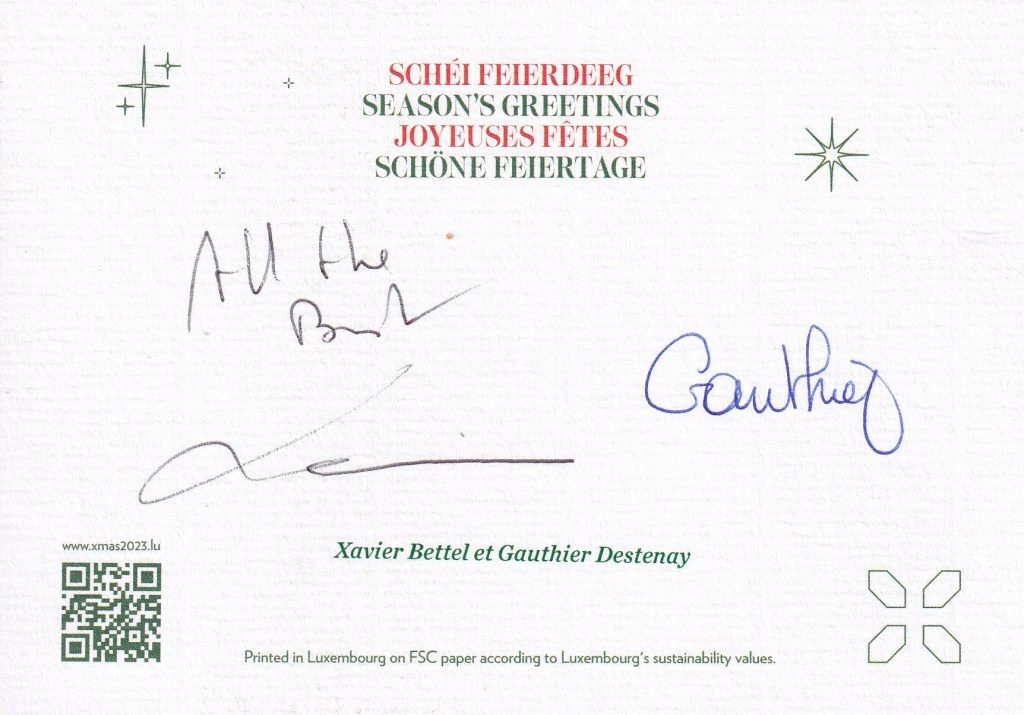 SCHÉI FEIERDEEG
SEASON'S GREETINGS
JOYEUSES FÊTES
SCHÖNE FEIERTAGE
All the
Best
Gauthier
www.xmas2023.lu
Xavier Bettel et Gauthier Destenay
Printed in Luxembourg on FSC paper according to Luxembourg's sustainability values.